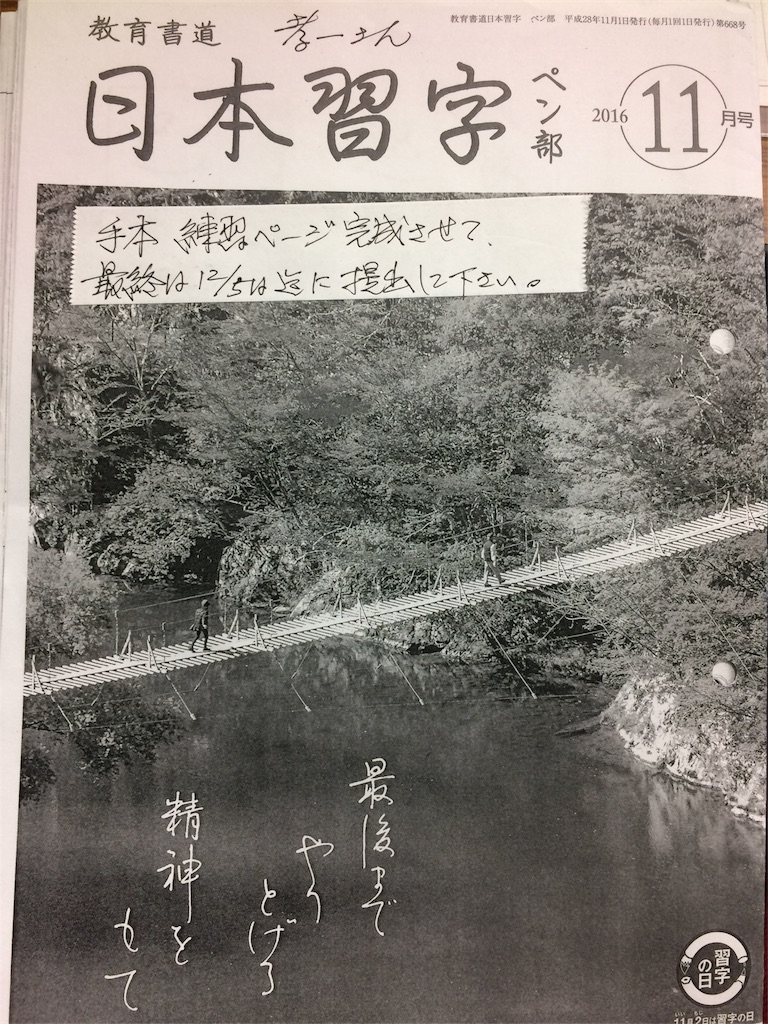 教育書道 孝一さん
教育書道日本習字 ペン部 平成28年11月1日発行(毎月1回1日発行)第668号
日本習字
ペン部
2016 11月号
手本 練習ページ完成させて、
最終は12/5は迄に提出して下さい。
最後まで
やり
とげる
精神を
もて
習字
の日
いい もじ
11月2日は習字の日